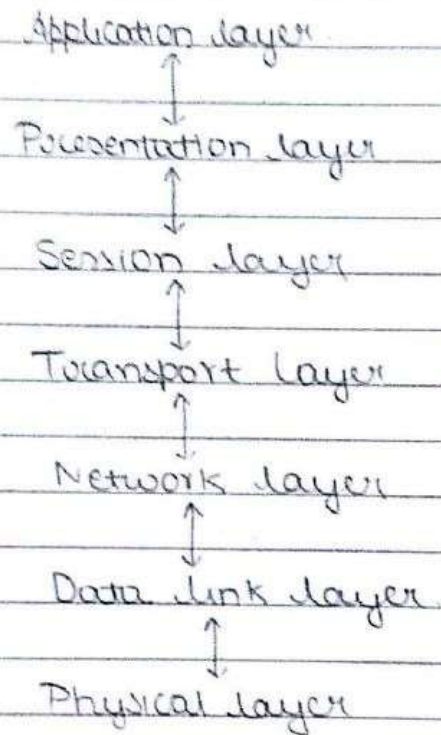 Application layer
Presentation layer
Session layer
Transport layer
Network layer
Data link layer
Physical layer